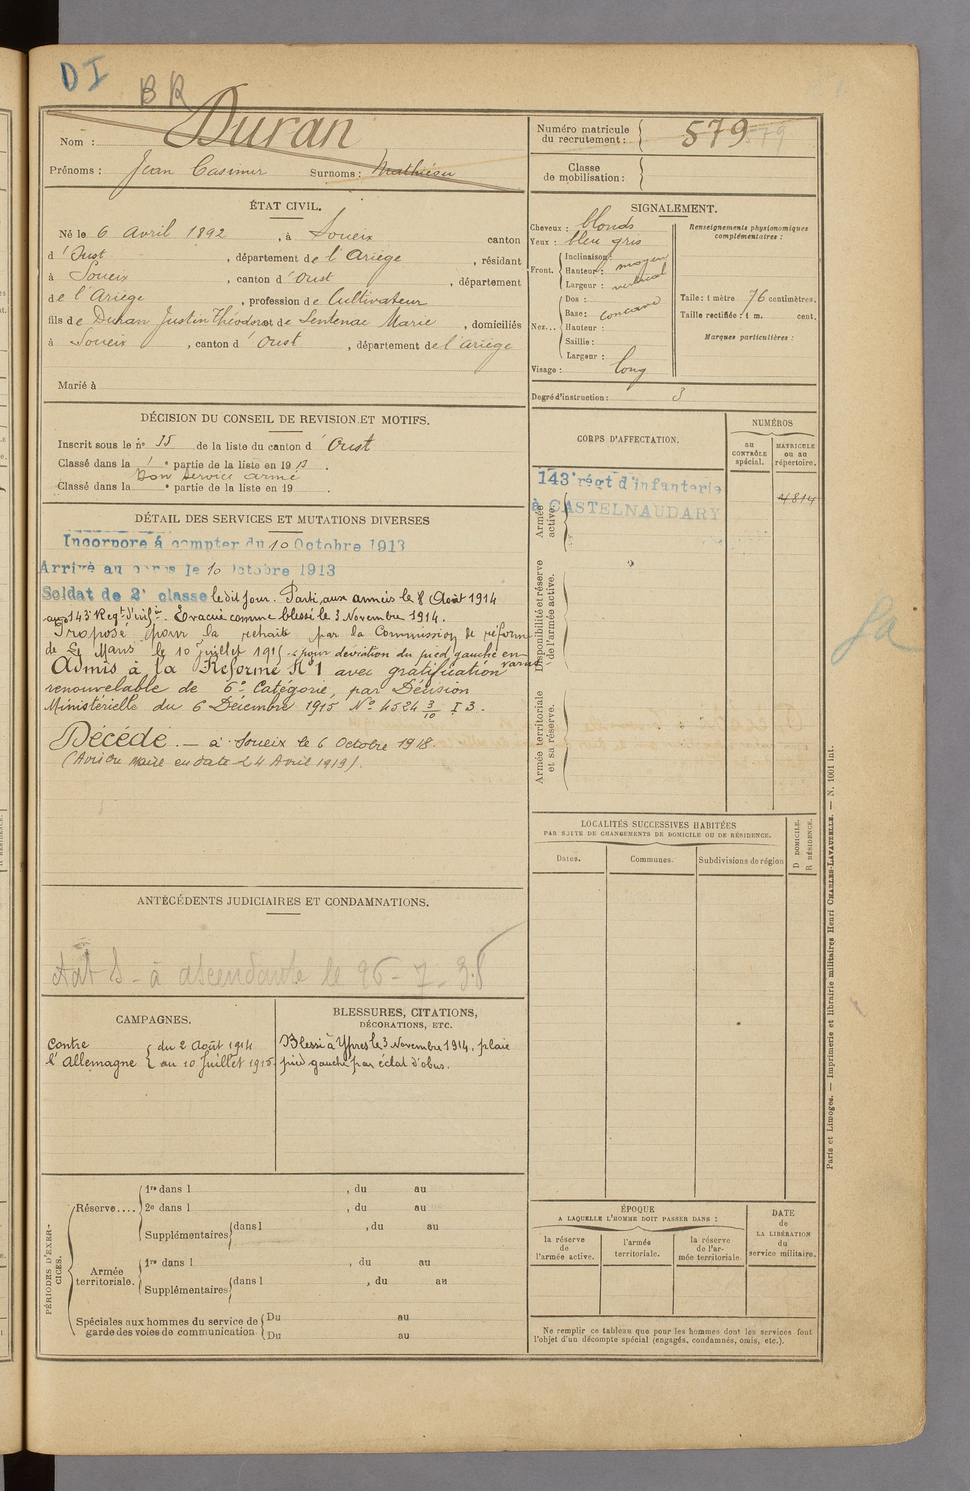 DI
BR
Nom : Duran
Prénoms : Jean Casimir Surnoms : Mathieu
Numéro matricule du recrutement : 579
Classe de mobilisation :
ÉTAT CIVIL.
Né le 6 Avril 1892, à Soueix canton
d'Oust, département de l'Ariège, résidant
à Soueix, canton d'Oust, département
de l'Ariège, profession de Cultivateur
fils de Duran Justin Théodore et de Sentenac Marie, domiciliés
à Soueix, canton d'Oust, département de l'Ariège
Marié à
SIGNALEMENT.
Cheveux : blonds
Yeux : bleu gris
Front. Inclinaison :
Hauteur : moyen
Largeur : vertical
Nez... Dos :
Base : concave
Hauteur :
Saillie :
Largeur :
Visage : long
Renseignements physionomiques complémentaires :
Taille : 1 mètre 76 centimètres.
Taille rectifiée : 1 m. cent.
Marques particulières :
Degré d'instruction : 3
DÉCISION DU CONSEIL DE REVISION ET MOTIFS.
Inscrit sous le no 15 de la liste du canton d'Oust
Classé dans la 1e partie de la liste en 1913.
Bon service armé
Classé dans la e partie de la liste en 19 .
DÉTAIL DES SERVICES ET MUTATIONS DIVERSES
Incorporé à compter du 10 Octobre 1913
Arrivé au corps le 10 Octobre 1913
Soldat de 2e classe le dit jour. Parti aux armées le 8 Août 1914
au 143e Regt d'infie. Evacué comme blessé le 3 Novembre 1914.
Proposé pour la retraite par la Commission de réforme
de Le Mans le 10 juillet 1915 pour déviation du pied gauche en varus
Admis à la Réforme No 1 avec gratification
renouvelable de 6e Catégorie, par Décision
Ministérielle du 6 Décembre 1915 No 4524 3/10 I 3.
Décédé. — à Soueix le 6 Octobre 1918.
(Avis du Maire en date 24 Avril 1919).
CORPS D'AFFECTATION.
NUMÉROS
au CONTRÔLE spécial.
MATRICULE ou au répertoire.
Armée active.
143e régt d'infanterie
à CASTELNAUDARY
4814
Disponibilité et réserve de l'armée active.
Armée territoriale et sa réserve.
LOCALITÉS SUCCESSIVES HABITÉES
PAR SUITE DE CHANGEMENTS DE DOMICILE OU DE RÉSIDENCE.
Dates.
Communes.
Subdivisions de région
D DOMICILE.
R RÉSIDENCE.
ANTÉCÉDENTS JUDICIAIRES ET CONDAMNATIONS.
à ascendante le 26-7-38
CAMPAGNES.
Contre l'Allemagne
du 2 Août 1914
au 10 Juillet 1915.
BLESSURES, CITATIONS,
DÉCORATIONS, ETC.
Blessé à Ypres le 3 Novembre 1914, plaie
pied gauche par éclat d'obus.
PÉRIODES D'EXERCICES.
Réserve.... 1re dans l , du au
2e dans l , du au
Supplémentaires dans l , du au
Armée territoriale. 1re dans l , du au
Supplémentaires dans l , du au
Spéciales aux hommes du service de garde des voies de communication
Du au
Du au
ÉPOQUE
A LAQUELLE L'HOMME DOIT PASSER DANS :
la réserve de l'armée active.
l'armée territoriale.
la réserve de l'armée territoriale.
DATE de LA LIBÉRATION du service militaire.
Ne remplir ce tableau que pour les hommes dont les services font
l'objet d'un décompte spécial (engagés, condamnés, omis, etc.).
Paris et Limoges. — Imprimerie et librairie militaires Henri CHARLES-LAVAUZELLE. — N. 1001 int.